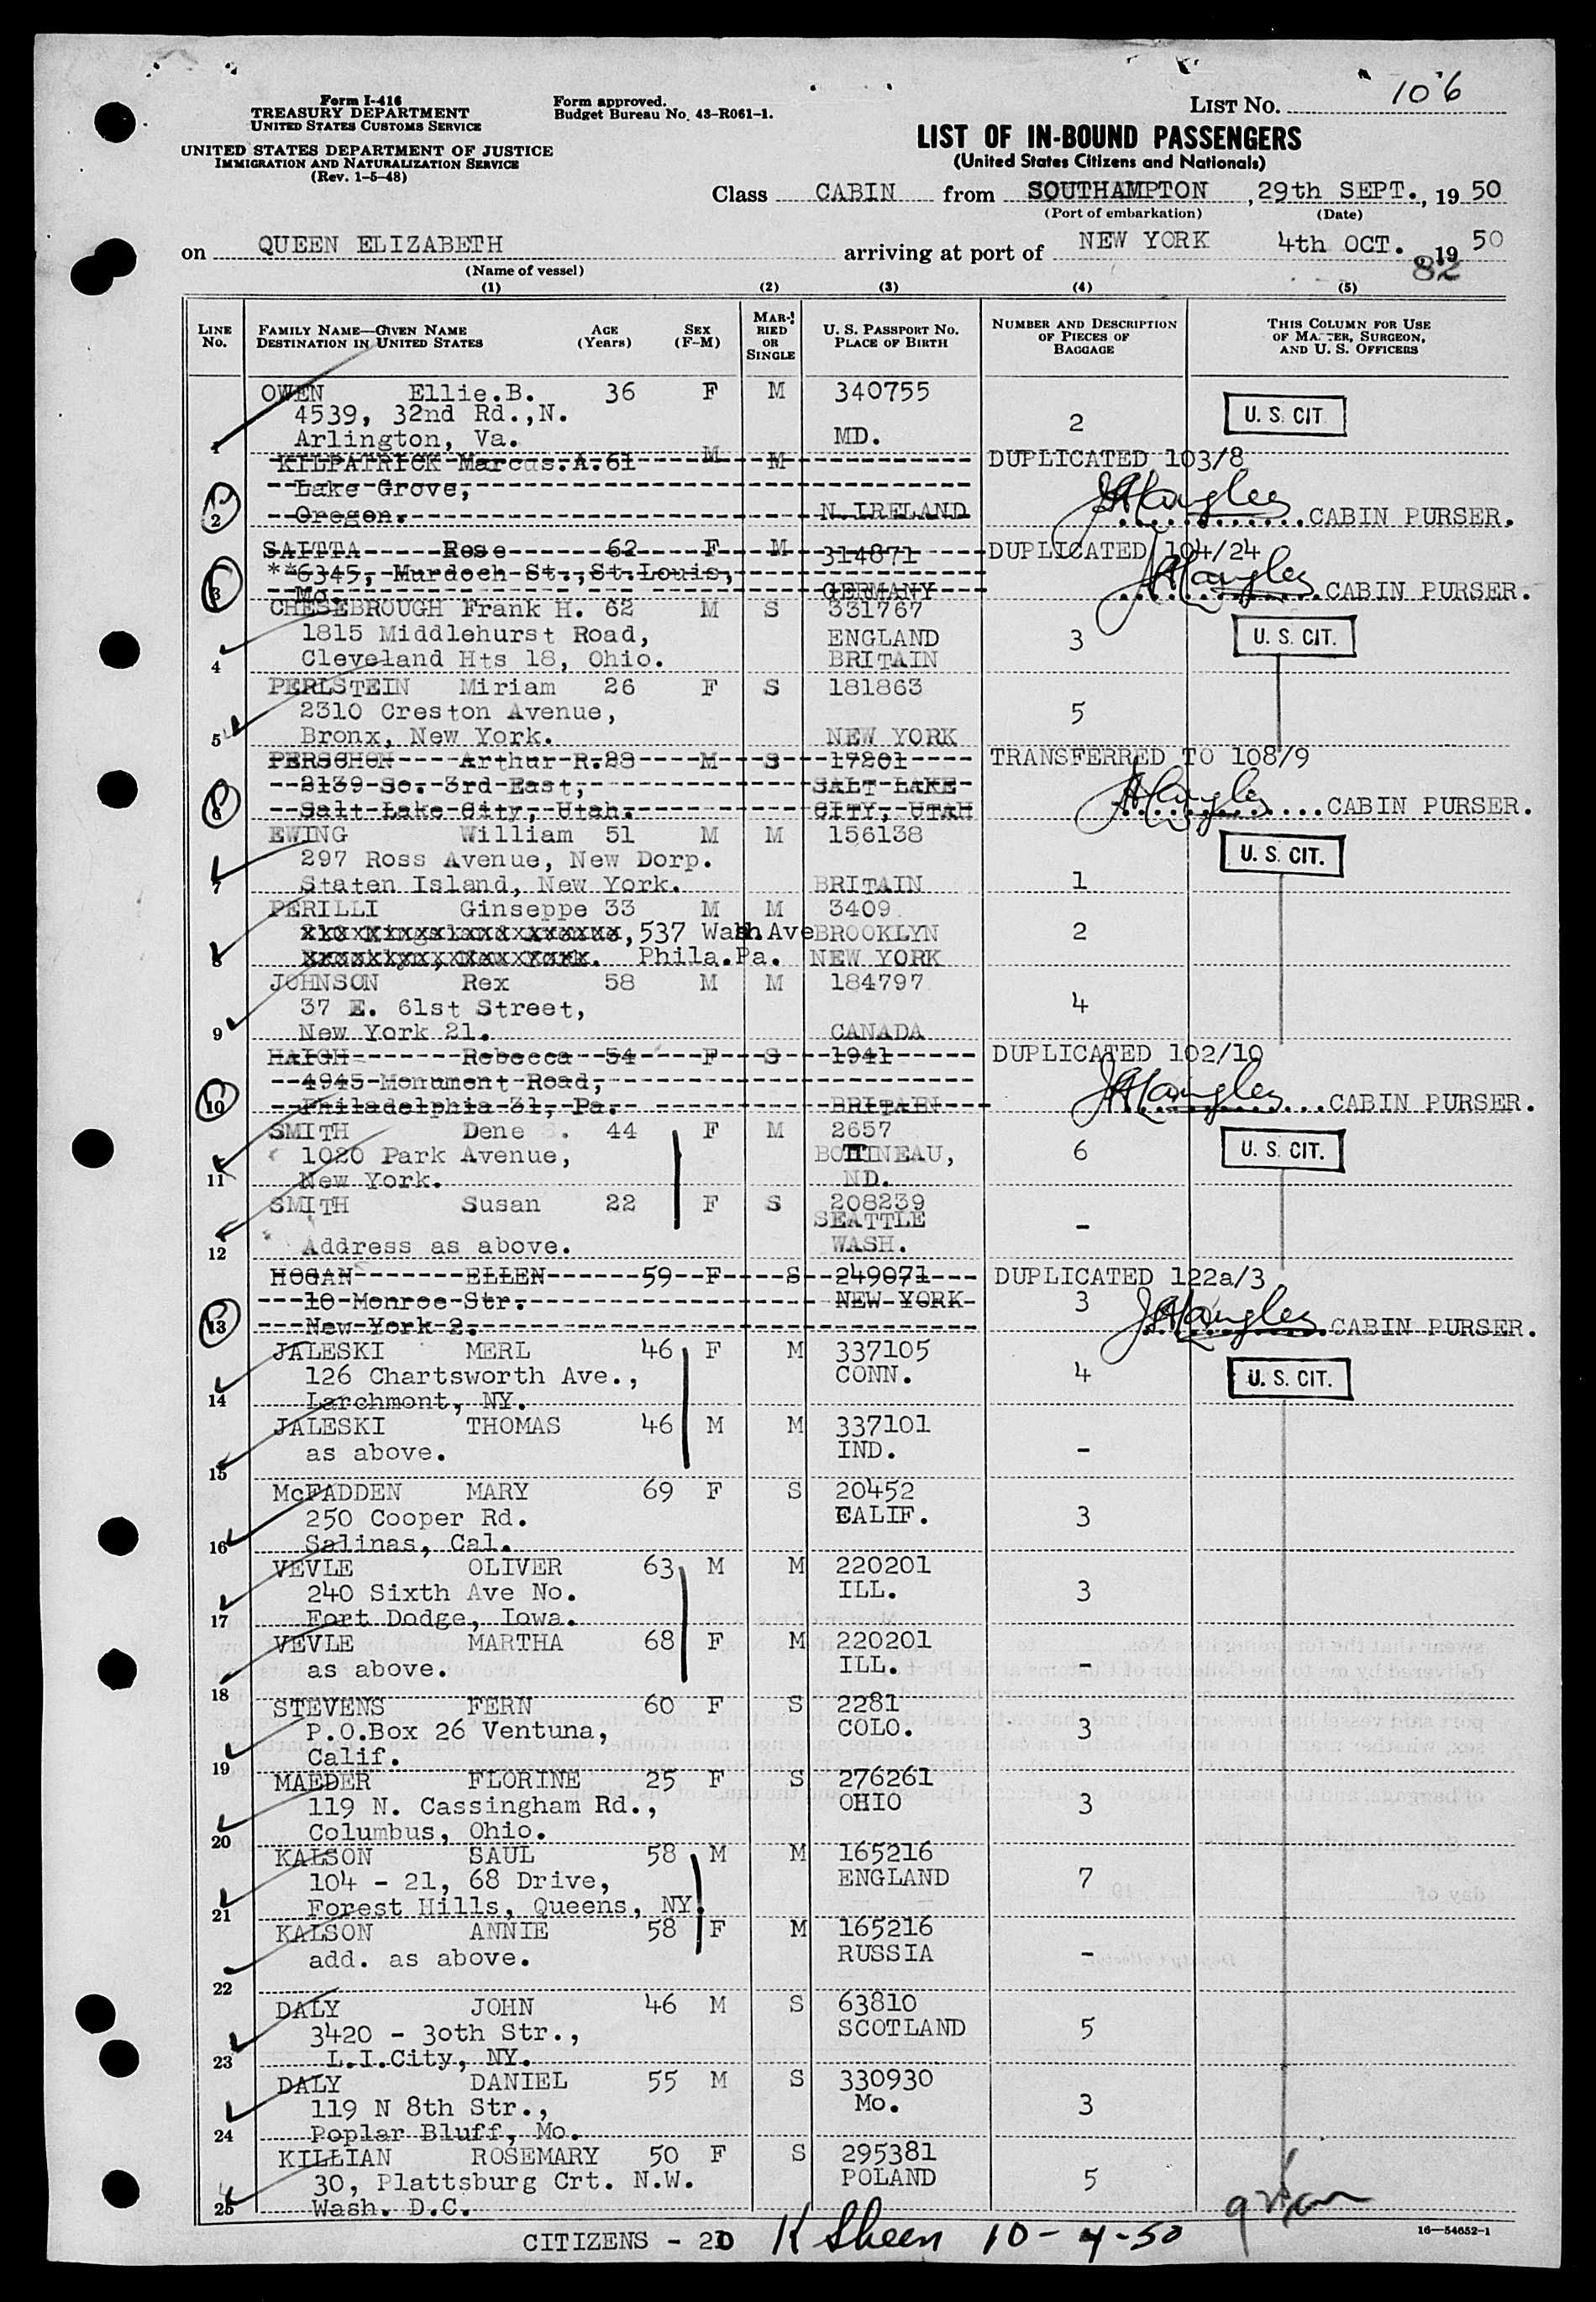 Form I-416
TREASURY DEPARTMENT
UNITED STATES CUSTOMS SERVICE
UNITED STATES DEPARTMENT OF JUSTICE
IMMIGRATION AND NATURALIZATION SERVICE
(Rev. 1-5-48)
Form approved.
Budget Bureau No. 43-R061-1.
LIST NO. 106
LIST OF IN-BOUND PASSENGERS
(United States Citizens and Nationals)
Class CABIN from SOUTHAMPTON, 29th SEPT., 19 50
(Port of embarkation) (Date)
on QUEEN ELIZABETH arriving at port of NEW YORK 4th OCT., 19 50
(Name of vessel) 82
(1) (2) (3) (4) (5)
LINE No. FAMILY NAME—GIVEN NAME DESTINATION IN UNITED STATES AGE (Years) SEX (F-M) MARRIED OR SINGLE U. S. PASSPORT NO. PLACE OF BIRTH NUMBER AND DESCRIPTION OF PIECES OF BAGGAGE THIS COLUMN FOR USE OF MASTER, SURGEON, AND U. S. OFFICERS
OWEN Ellie.B. 36 F M 340755
4539, 32nd Rd.,N. 2 U. S. CIT
1 Arlington, Va. MD.
KILPATRICK Marcus.A.61 M M DUPLICATED 103/8
Lake Grove,
2 Oregon. N.IRELAND CABIN PURSER.
SAITTA Rose 62 F M 314871 DUPLICATED 104/24
**6345, Murdoch St.,St.Louis,
3 Mo. GERMANY CABIN PURSER.
CHESEBROUGH Frank H. 62 M S 331767
1815 Middlehurst Road, ENGLAND 3 U. S. CIT.
4 Cleveland Hts 18, Ohio. BRITAIN
PERLSTEIN Miriam 26 F S 181863
2310 Creston Avenue, 5
5 Bronx, New York. NEW YORK
PERSCHON Arthur R.28 M S 17201 TRANSFERRED TO 108/9
2139 So. 3rd East, SALT LAKE
6 Salt Lake City, Utah. CITY, UTAH CABIN PURSER.
EWING William 51 M M 156138
297 Ross Avenue, New Dorp. U. S. CIT.
7 Staten Island, New York. BRITAIN 1
PERILLI Ginseppe 33 M M 3409
537 Wash.Ave BROOKLYN 2
8 Phila.Pa. NEW YORK
JOHNSON Rex 58 M M 184797
37 E. 61st Street, 4
9 New York 21. CANADA
HAIGH Rebecca 54 F S 1941 DUPLICATED 102/10
4945 Monument Road,
10 Philadelphia 31, Pa. BRITAIN CABIN PURSER.
SMITH Dene 44 F M 2657
1020 Park Avenue, BOTTINEAU, 6 U. S. CIT.
11 New York. ND.
SMITH Susan 22 F S 208239
SEATTLE -
12 Address as above. WASH.
HOGAN ELLEN 59 F S 249071 DUPLICATED 122a/3
10 Monroe Str. NEW YORK 3
13 New York 2. CABIN PURSER.
JALESKI MERL 46 F M 337105
126 Chartsworth Ave., CONN. 4 U. S. CIT.
14 Larchmont, NY.
JALESKI THOMAS 46 M M 337101
as above. IND. -
15
McFADDEN MARY 69 F S 20452
250 Cooper Rd. CALIF. 3
16 Salinas, Cal.
VEVLE OLIVER 63 M M 220201
240 Sixth Ave No. ILL. 3
17 Fort Dodge, Iowa.
VEVLE MARTHA 68 F M 220201
as above. ILL. -
18
STEVENS FERN 60 F S 2281
P.O.Box 26 Ventuna, COLO. 3
19 Calif.
MAEDER FLORINE 25 F S 276261
119 N. Cassingham Rd., OHIO 3
20 Columbus, Ohio.
KALSON SAUL 58 M M 165216
104 - 21, 68 Drive, ENGLAND 7
21 Forest Hills, Queens, NY.
KALSON ANNIE 58 F M 165216
add. as above. RUSSIA -
22
DALY JOHN 46 M S 63810
3420 - 30th Str., SCOTLAND 5
23 L.I.City, NY.
DALY DANIEL 55 M S 330930
119 N 8th Str., Mo. 3
24 Poplar Bluff, Mo.
KILLIAN ROSEMARY 50 F S 295381
30, Plattsburg Crt. N.W. POLAND 5
25 Wash. D.C.
CITIZENS - 20 K Sheen 10-4-50 16—54652-1